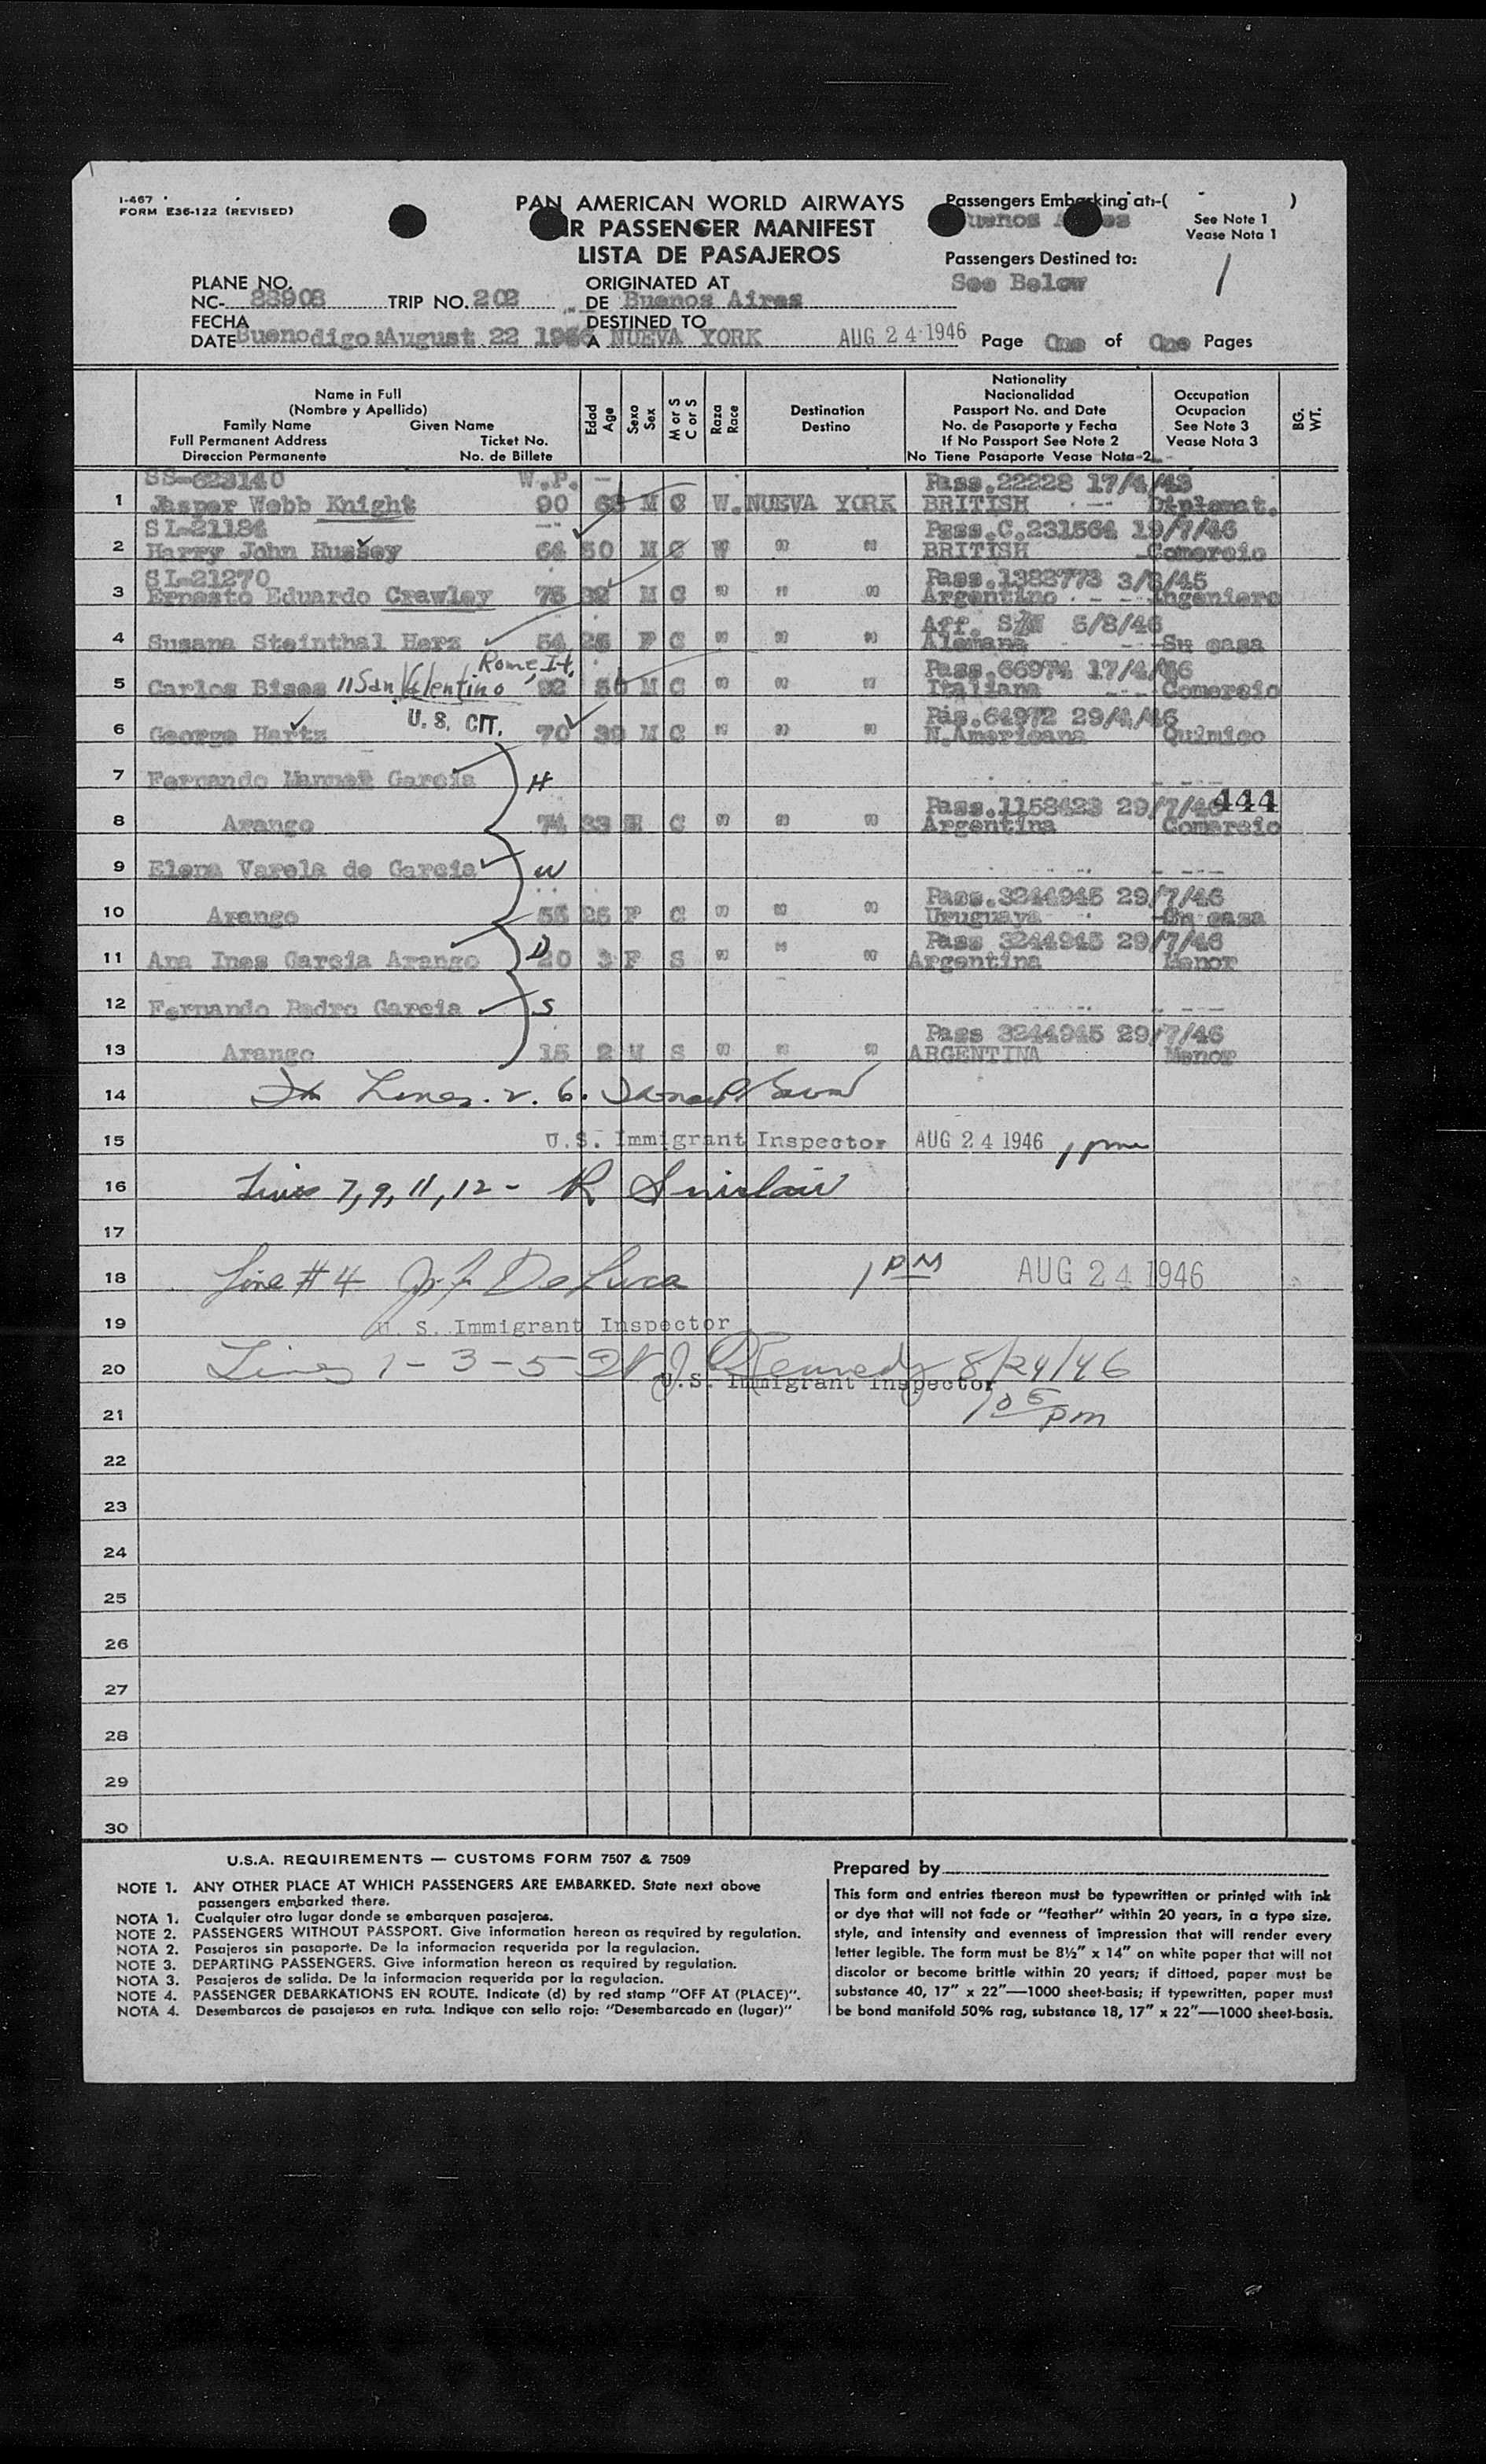 I-467
FORM E36-122 (REVISED)
PAN AMERICAN WORLD AIRWAYS
AIR PASSENGER MANIFEST
LISTA DE PASAJEROS
Passengers Embarking at:-( )
Buenos Aires
See Note 1
Vease Nota 1
Passengers Destined to:
See Below
1
PLANE NO.
NC- 88908 TRIP NO. 202
ORIGINATED AT
DE Buenos Aires
FECHA
DATE August 22 1946
DESTINED TO
A NUEVA YORK AUG 24 1946 Page One of One Pages
Name in Full
(Nombre y Apellido)
Family Name Given Name
Full Permanent Address Ticket No.
Direccion Permanente No. de Billete
Edad Age
Sexo Sex
M or S C or S
Raza Race
Destination
Destino
Nationality
Nacionalidad
Passport No. and Date
No. de Pasaporte y Fecha
If No Passport See Note 2
No Tiene Pasaporte Vease Nota-2
Occupation
Ocupacion
See Note 3
Vease Nota 3
BG. WT.
SS-623140 W.P. - Pass.22228 17/4/43
1 Jasper Webb Knight 90 68 M C W. NUEVA YORK BRITISH Diplomat.
SI-21184 Pass.C.231564 19/7/46
2 Harry John Hussey 64 50 M C W " " BRITISH Comercio
SI-21270 Pass.1383773 3/8/45
3 Ernesto Eduardo Crawley 75 32 M C " " " Argentino Ingeniero
Aff. S/N 5/8/46
4 Susana Steinthal Herz 54 25 F C " " " Alemana Su casa
Rome, It. Pass.66974 17/4/46
5 Carlos Bises 11 San Valentino 92 50 M C " " " Italiana Comercio
U.S. CIT. Pas.64972 29/4/46
6 George Hartz 70 39 M C " " " N.Americana Quimico
7 Fernando Manuel Garcia H
Pass.1158423 29/7/46 444
8 Arango 74 33 M C " " " Argentina Comercio
9 Elena Varela de Garcia W
Pass.3244945 29/7/46
10 Arango 53 25 F C " " " Uruguaya Su casa
Pass 3244945 29/7/46
11 Ana Ines Garcia Arango D 20 3 F S " " " Argentina Menor
12 Fernando Pedro Garcia S
Pass 3244945 29/7/46
13 Arango 15 2 M S " " " ARGENTINA Menor
14 Lines. 2. 6.
15 U.S. Immigrant Inspector AUG 24 1946 1 pm
16 Lines 7, 9, 11, 12 - R Sinclair
17
18 Line # 4 De Luca 1 PM AUG 24 1946
19 U. S. Immigrant Inspector
20 Lines 1-3-5 J. Kennedy 8/24/46
U.S. Immigrant Inspector
21 1 05 pm
22
23
24
25
26
27
28
29
30
U.S.A. REQUIREMENTS — CUSTOMS FORM 7507 & 7509
NOTE 1. ANY OTHER PLACE AT WHICH PASSENGERS ARE EMBARKED. State next above
passengers embarked there.
NOTA 1. Cualquier otro lugar donde se embarquen pasajeros.
NOTE 2. PASSENGERS WITHOUT PASSPORT. Give information hereon as required by regulation.
NOTA 2. Pasajeros sin pasaporte. De la informacion requerida por la regulacion.
NOTE 3. DEPARTING PASSENGERS. Give information hereon as required by regulation.
NOTA 3. Pasajeros de salida. De la informacion requerida por la regulacion.
NOTE 4. PASSENGER DEBARKATIONS EN ROUTE. Indicate (d) by red stamp "OFF AT (PLACE)".
NOTA 4. Desembarcos de pasajeros en ruta. Indique con sello rojo: "Desembarcado en (lugar)"
Prepared by
This form and entries thereon must be typewritten or printed with ink
or dye that will not fade or "feather" within 20 years, in a type size,
style, and intensity and evenness of impression that will render every
letter legible. The form must be 8½" x 14" on white paper that will not
discolor or become brittle within 20 years; if dittoed, paper must be
substance 40, 17" x 22"—1000 sheet-basis; if typewritten, paper must
be bond manifold 50% rag, substance 18, 17" x 22"—1000 sheet-basis.